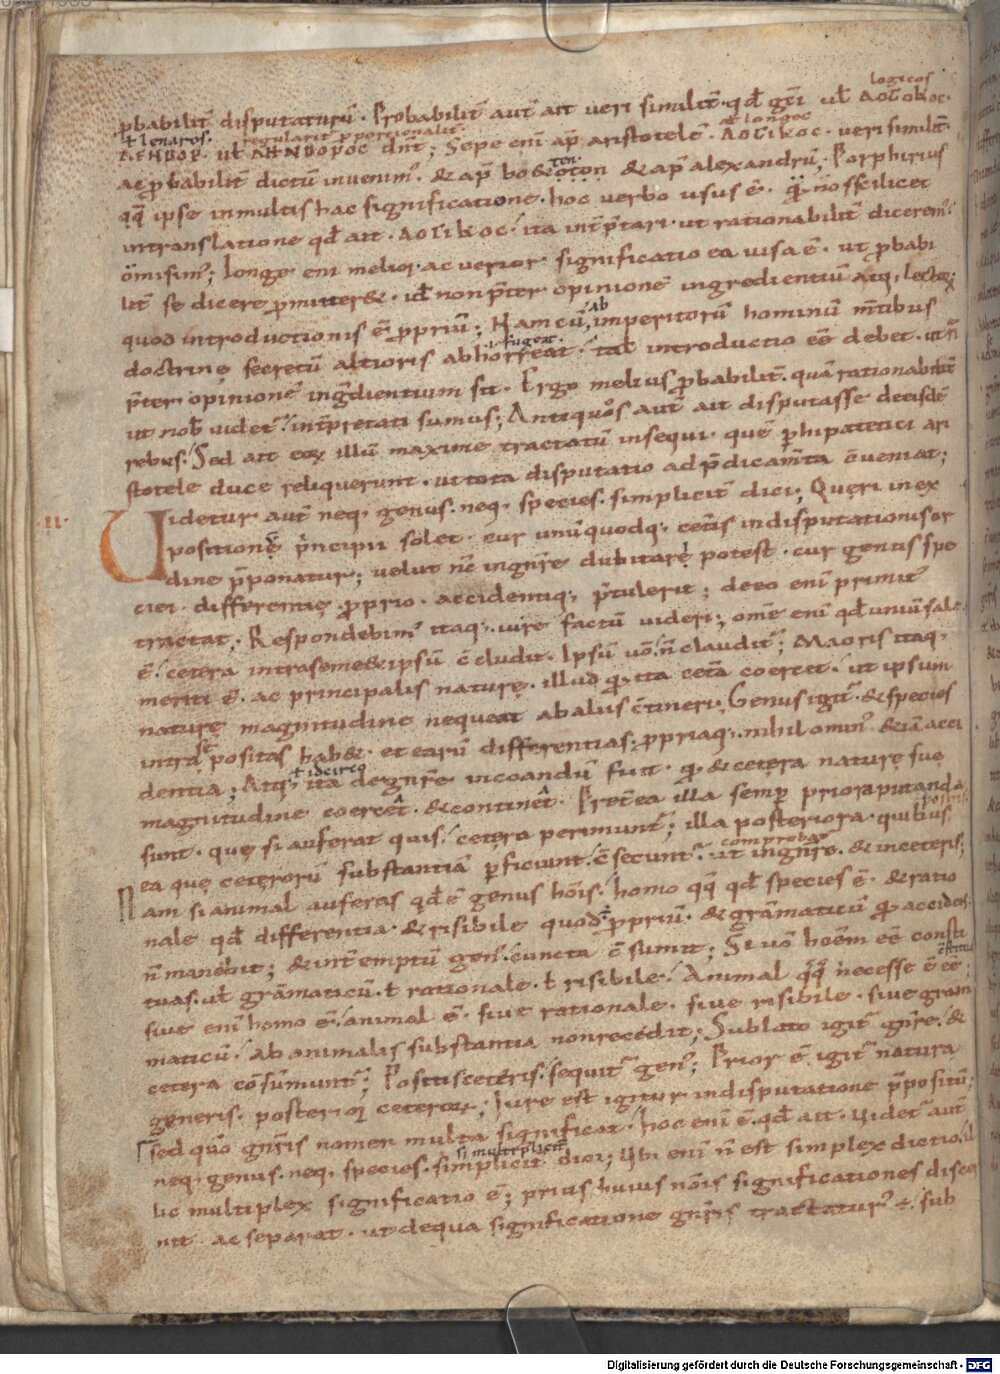 logicos
ꝓbabilit̄ disputaturū · Probabilit̄ aut̄ ait veri similit̄ · qd̄ gr̄i ul̄ ΛΟΓΙΚΟC ·
ł lendros · regularit̄ ꝓportionalit̄ · ł longoc
ul̄ dn̄t ; Sepe eni ap̄ aristotelē · ΛΟΓΙΚΟC · veri similit̄ ·
ac ꝓbabilit̄ dictū invenim᛫ · & ap̄ boetion & ap̄ alexandrū ; Porphirius
qq̄ ipse in multis hac significatione · hoc verbo usus ē · qm̄ nos scilicet
in translatione qd̄ ait · ΛΟΓΙΚΟC · ita int̄p̄tari · ut rationabilit̄ dicerem᛫
omisim᛫ ; longe eni melior ac verior significatio ea visa ē · ut ꝓbabi
lit̄ se dicere ꝓmitter& · id̄ non p̄ter opinionē ingredientiū atq; lectoꝝ ;
quod introductionis ē ꝓpriū ; Nam cū ab imperitorū hominū m̄tibus
ł fugeat
doctrinę secretū altioris abhorreat · tal̄ introductio eē debet · ut n̄
p̄ter opinionē ingr̄dientium sit · Ergo melius ꝓbabilit̄ quā rationabilit̄
ut nob̄ videt᛫ int̄p̄tati sumus ; Antiquos aut̄ ait disputasse de eisdē
rebus · Sed ait eoꝝ illū maxime tractatū insequi · quē phipatetici ari
stotele duce reliquerunt · ut tota disputatio ad p̄dicam̄ta c̄veniat ;
·II· Uidetur aut̄ neq; genus · neq; species · simplicit̄ dici ; Queri in ex
positionē p̄ncipii solet · cur unū quodq; cet̄is in disputationis or
dine p̄ponatur ; velut nc̄ in gn̄re dubitare potest · cur genus spe
ciei · differentię · ꝓprio · accidentiq; p̄tulerit ; de eo eni primit᛫
tractat · Respondebim᛫ itaq; iure factū videri ; om̄e eni qd̄ universale
ē · cetera intra semet ipsū c̄cludit · Ipsū vō n̄ claudit᛫ ; Maoris itaq;
meriti ē · ac principalis naturę · illud qd̄ ita cet̄a coercet · ut ipsum
naturę magnitudine nequeat ab aliis c̄tineri ; Genus igit᛫ & species
intra se positas hab& · et earū differentias ꝓpriaq; nihilomin᛫ & iā acci
ł idcirco
dentia ; Atq; ita de gn̄re incoandū fuit · qd̄ & cetera naturę suę
magnitudine coercet · & continet · Pret̄ea illa semꝑ priora putanda
sunt · quę si auferat quis · cetera perimunt᛫ ; illa posteriora · quibus positis
comprobat᛫
ea que ceterorū substantiā ꝑficiunt · c̄secunt᛫ ut in gn̄re · & in ceteris ;
Nam si animal auferas qd̄ ē genus hōis · homo qq̄ qd̄ species ē · & ratio
nale qd̄ differentia · & risibile quod ē ꝓpriū · & gramaticū qd̄ accidens
n̄ manebit ; & int̄emptū gen᛫ cuncta c̄sumit ; Si vō hoēm eē consti
tuas · ul̄ gramaticū · ł rationale · ł risibile · Animal qq̄ necesse ē eē ;
sive eni homo ē · animal ē · sive rationale · sive risibile · sive gram
maticū · ab animalis substantia non recedit ; Sublato igit᛫ gn̄re · &
cetera consumunt᛫ ; Positis ceteris · sequit᛫ gen᛫ ; Prior ē igit᛫ natura
generis · posterior ceteroꝝ ; Iure est igitur in disputatione p̄positū ;
Sed qm̄ gn̄ris nomen multa significat · hoc eni ē qd̄ ait · Videt᛫ aut̄
ł multiplicit̄
neq; genus · neq; species · simplicit̄ dici ; Ubi eni n̄ est simplex dictio · il
lic multiplex significatio ē ; prius huius nōis significationes discer
nit · ac separat · ut de qua significatione gn̄ris tractatur᛫ ē · sub
Digitalisierung gefördert durch die Deutsche Forschungsgemeinschaft · DFG